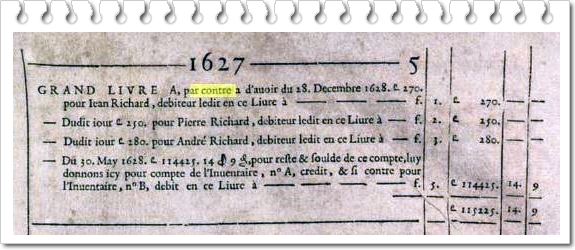 1627 5
GRAND LIVRE A, par contre a d'auoir du 28. Decembre 1628. ₤ 270.
pour Iean Richard, debiteur ledit en ce Liure à — f. 1. ₤ 270. — —
— Dudit iour ₤ 250. pour Pierre Richard, debiteur ledit en ce Liure à — f. 2. ₤ 250. — —
— Dudit iour ₤ 280. pour André Richard, debiteur ledit en ce Liure à — f. 3. ₤ 280. — —
— Dũ 30. May 1628. ₤ 114425. 14 ꝭ 9 ₰, pour reste & soulde de ce compte, luy
donnons icy pour compte de l'Inuentaire, nº A, credit, & si contre pour
l'Inuentaire, nº B, debit en ce Liure à — f. 5. ₤ 114425. 14. 9
₤ 115225. 14. 9